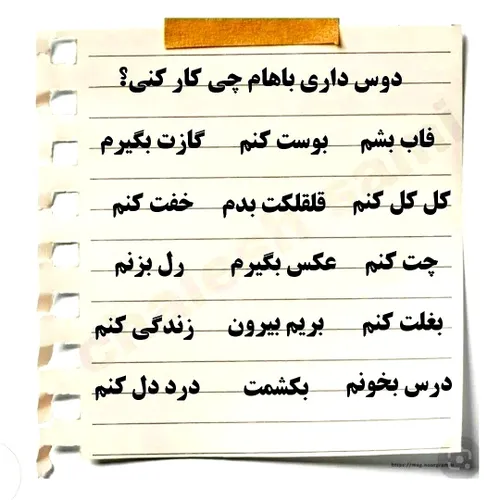 دوس داری باهام چی کار کنی؟
فاب بشم بوست کنم گازت بگیرم
کل کل کنم قلقلکت بدم خفت کنم
چت کنم عکس بگیرم رل بزنم
بغلت کنم بریم بیرون زندگی کنم
درس بخونم بکشمت درد دل کنم